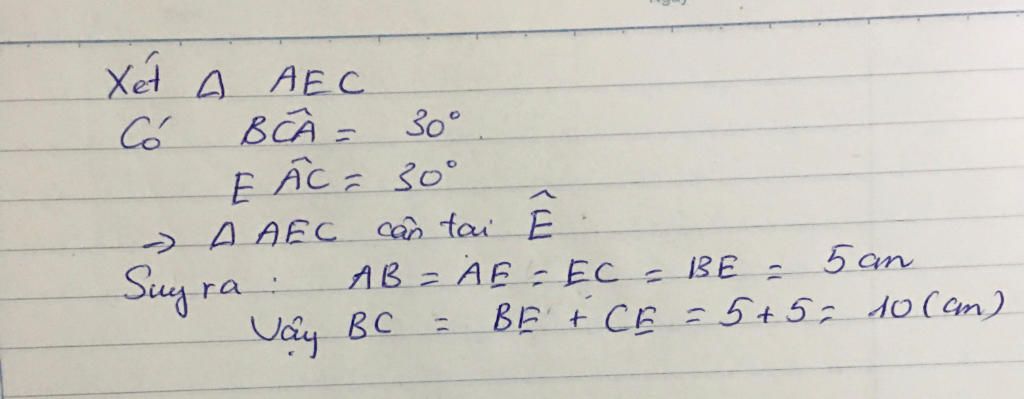 Xét Δ AEC
Có BĈA = 30°.
EÂC = 30°
→ Δ AEC cân tại Ê
Suy ra : AB = AE = EC = BE = 5 cm
Vậy BC = BE + CE = 5 + 5 = 10 (cm)